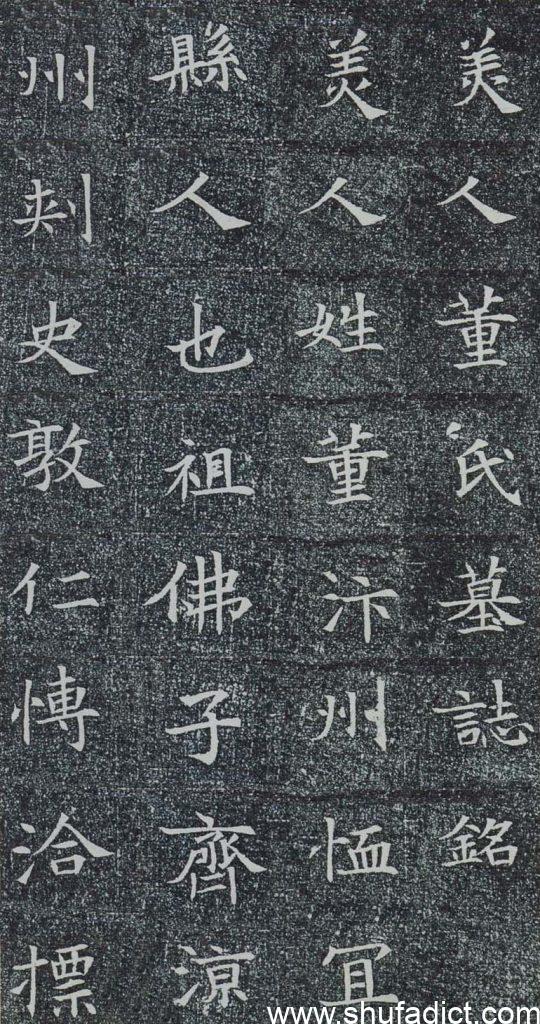 美人董氏墓誌銘
美人姓董汴州恤冝
縣人也祖佛子齊涼
州刾史敦仁愽洽摽
www.shufadict.com